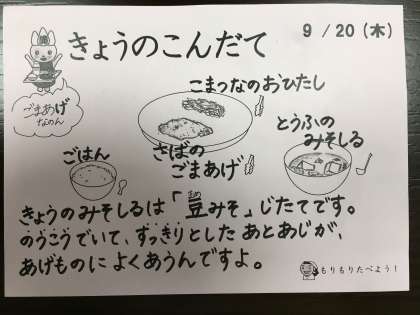 きょうのこんだて
9/20(木)
ごまあげ
なのん
こまつなのおひたし
とうふの
みそしる
ごはん
さばの
ごまあげ
きょうのみそしるは「豆みそ」じたてです。
のうこうでいて、すっきりとしたあとあじが、
あげものによくあうんですよ。
もりもりたべよう!